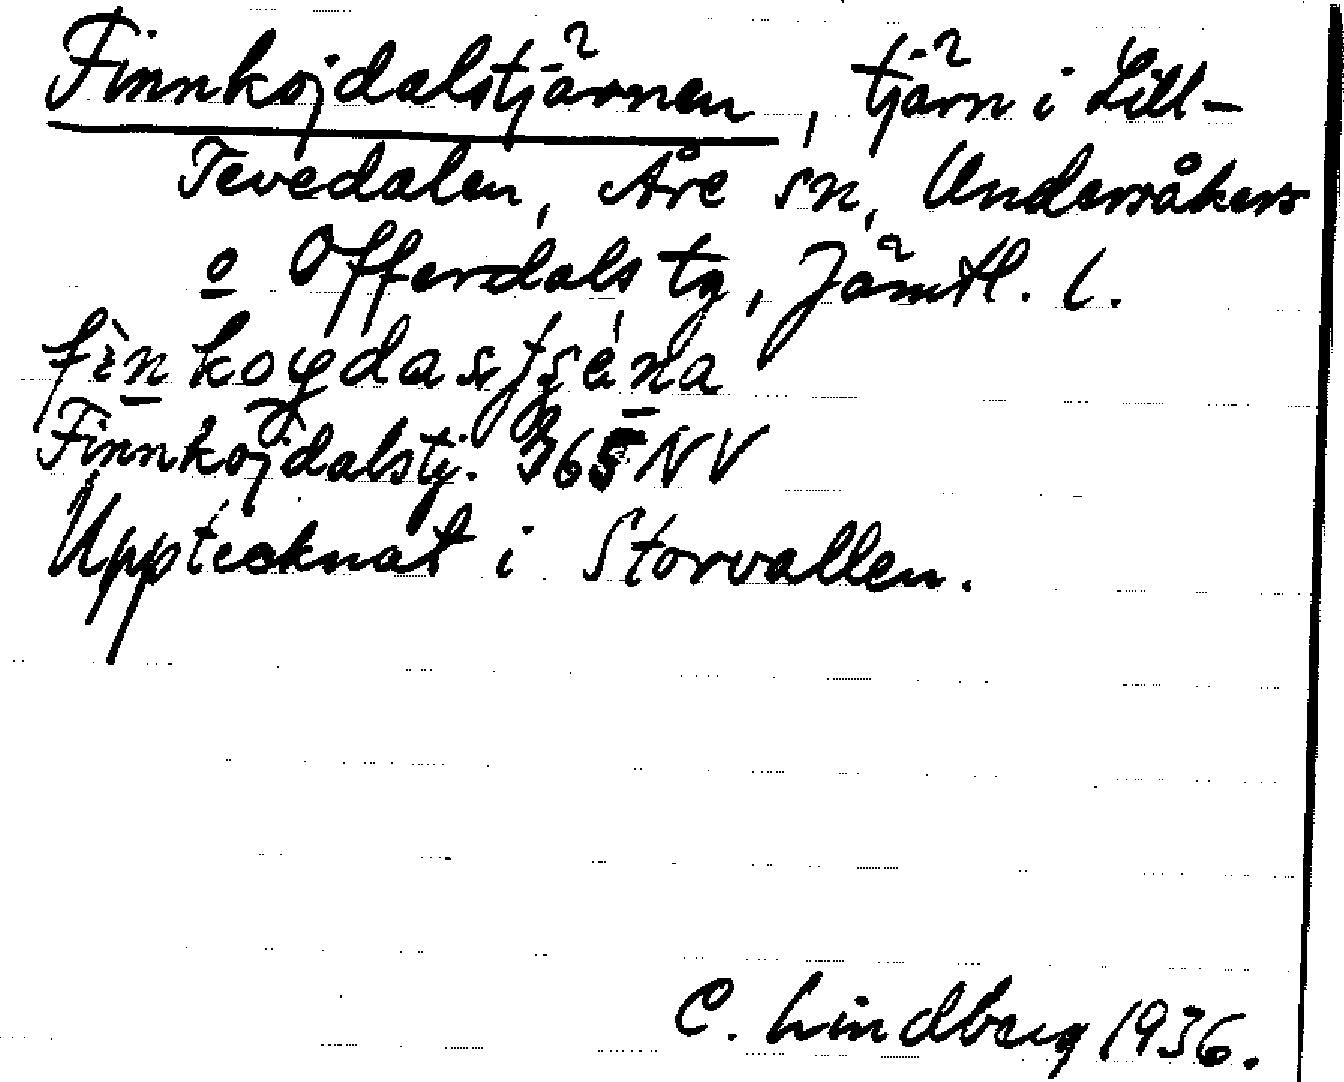 Finnkojdalstjärnen, tjärn i Lill-
Tevedalen, Åre sn, Undersåkers
o Offerdals tg, Jämtl. l.
Finnkojdalstj. 365 NV
Upptecknat i Storvallen.
C. Lindberg 1936.